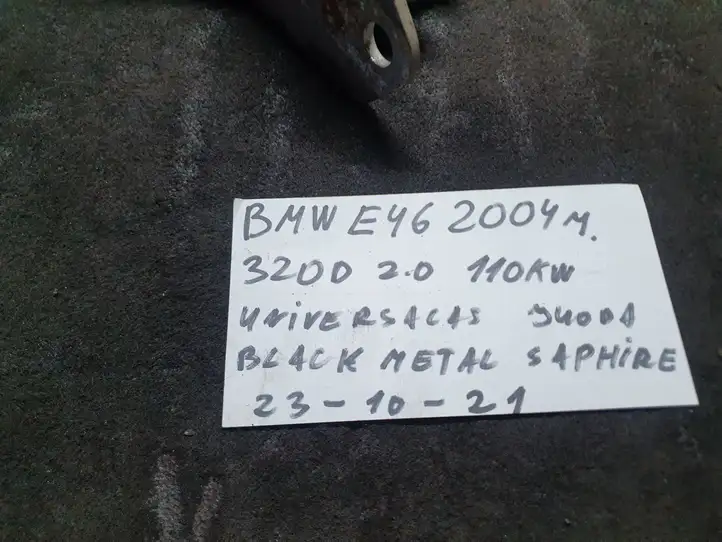 BMW E46 2004 m.
320D 2.0 110KW
UNIVERSALAS JUODA
BLACK METAL SAPHIRE
23-10-21